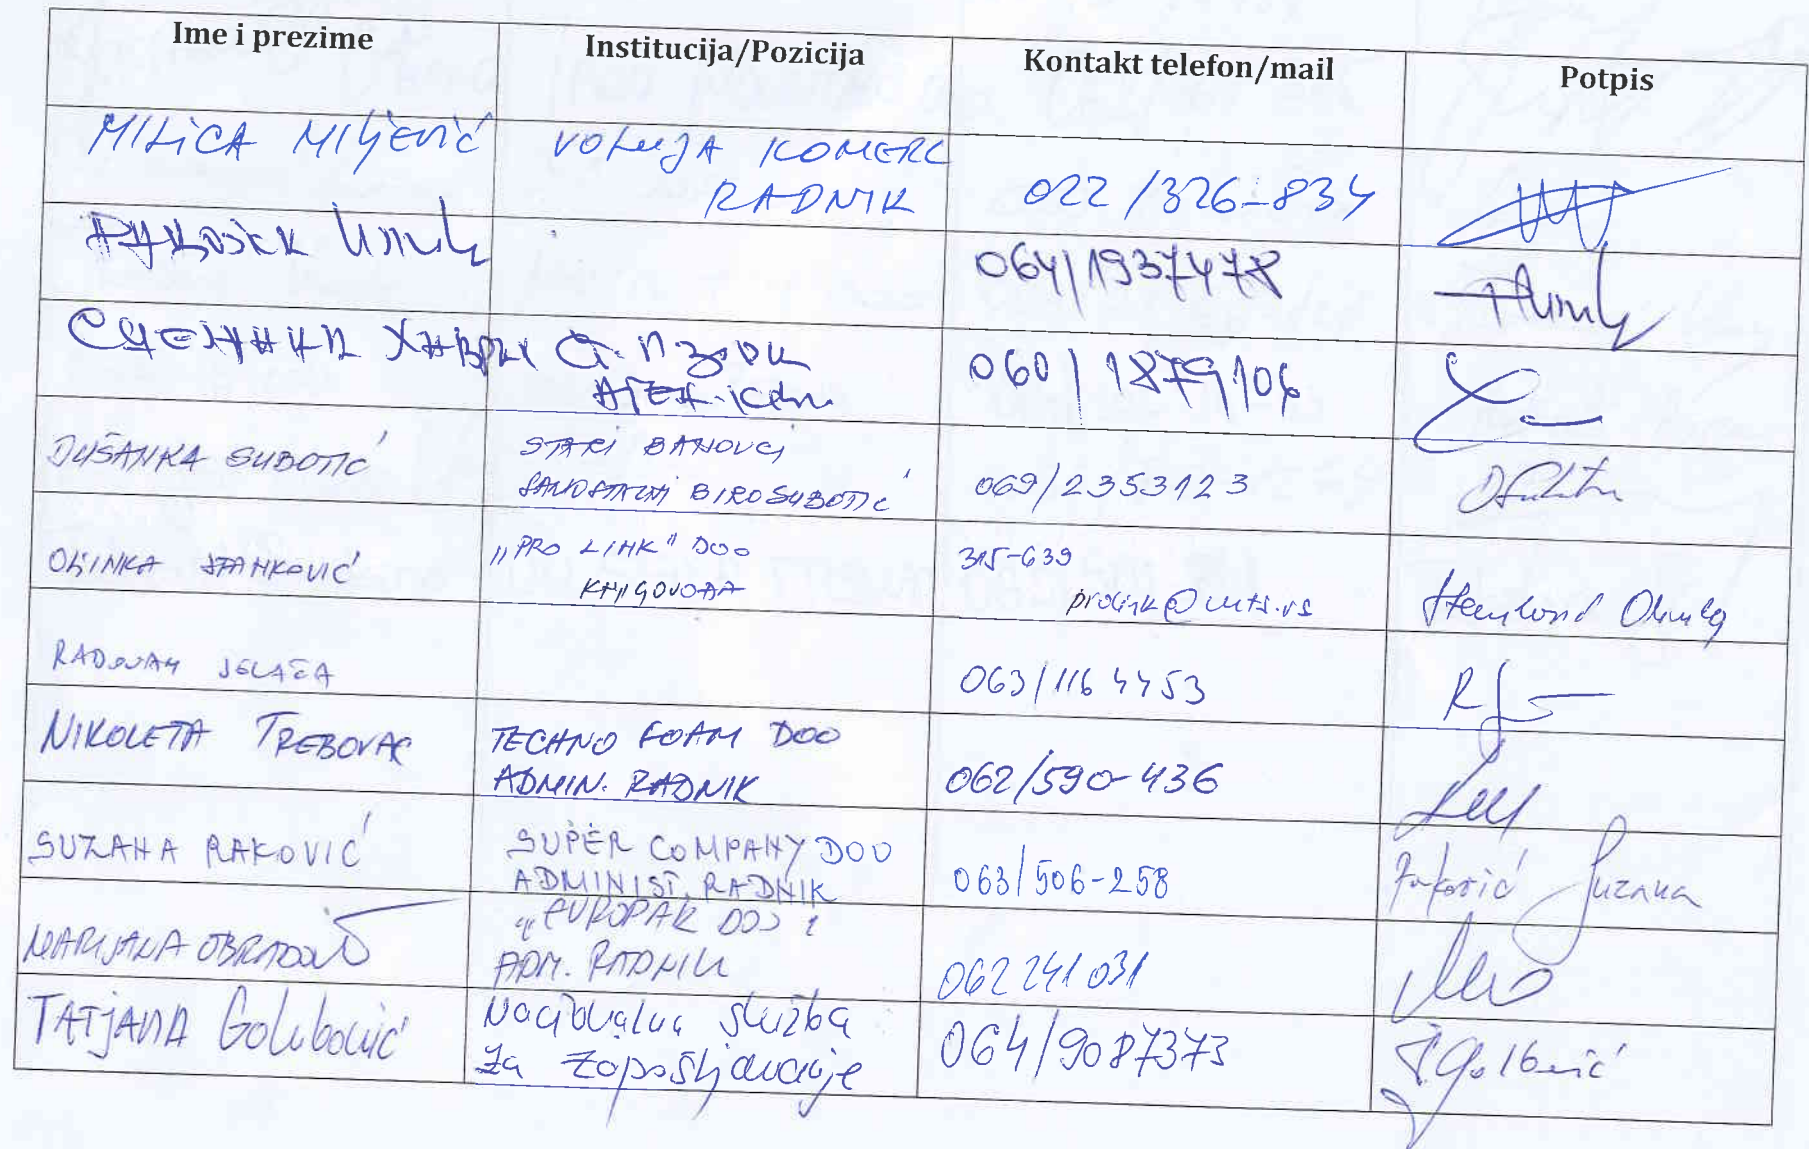 Ime i prezime Institucija/Pozicija Kontakt telefon/mail Potpis
MILICA MILJEVIĆ VOLUJA KOMERC
RADNIK 022/326-834
064/1937478
060/1879106
DUŠANKA SUBOTIĆ STARI BANOVCI
SAMOSTALNI BIRO SUBOTIĆ 069/2353123
OLINKA STANKOVIĆ "PRO LINK" DOO 315-639
KNJIGOVOĐA prolink@mts.rs
RADOVAN JELAČA 063/116 4453
NIKOLETA TREBOVAC TECHNO FOAM DOO
ADMIN. RADNIK 062/590-436
SUZANA RAKOVIĆ SUPER COMPANY DOO
ADMINIST. RADNIK 063/506-258 Raković Suzana
MARIJANA OBRADOVIĆ "EUROPAK DOO"
ADM. RADNIK 062 241 031
TATJANA Golubović Nacionalna služba
za zapošljavanje 064/9087373